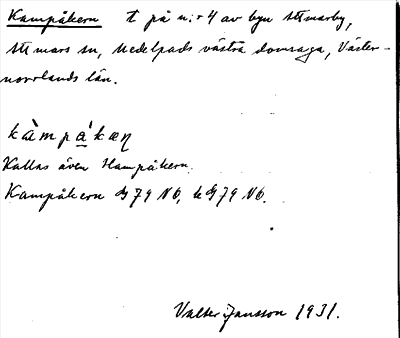 Kampåkern t på n:r 4 av byn Attmarby,
Attmars sn, Medelpads västra domsaga, Väster-
norrlands län.
kàmpákæn
Kallas även Hampåkern.
Kampåkern 79 Nb, 79 Nb.
Valter Jansson 1931.